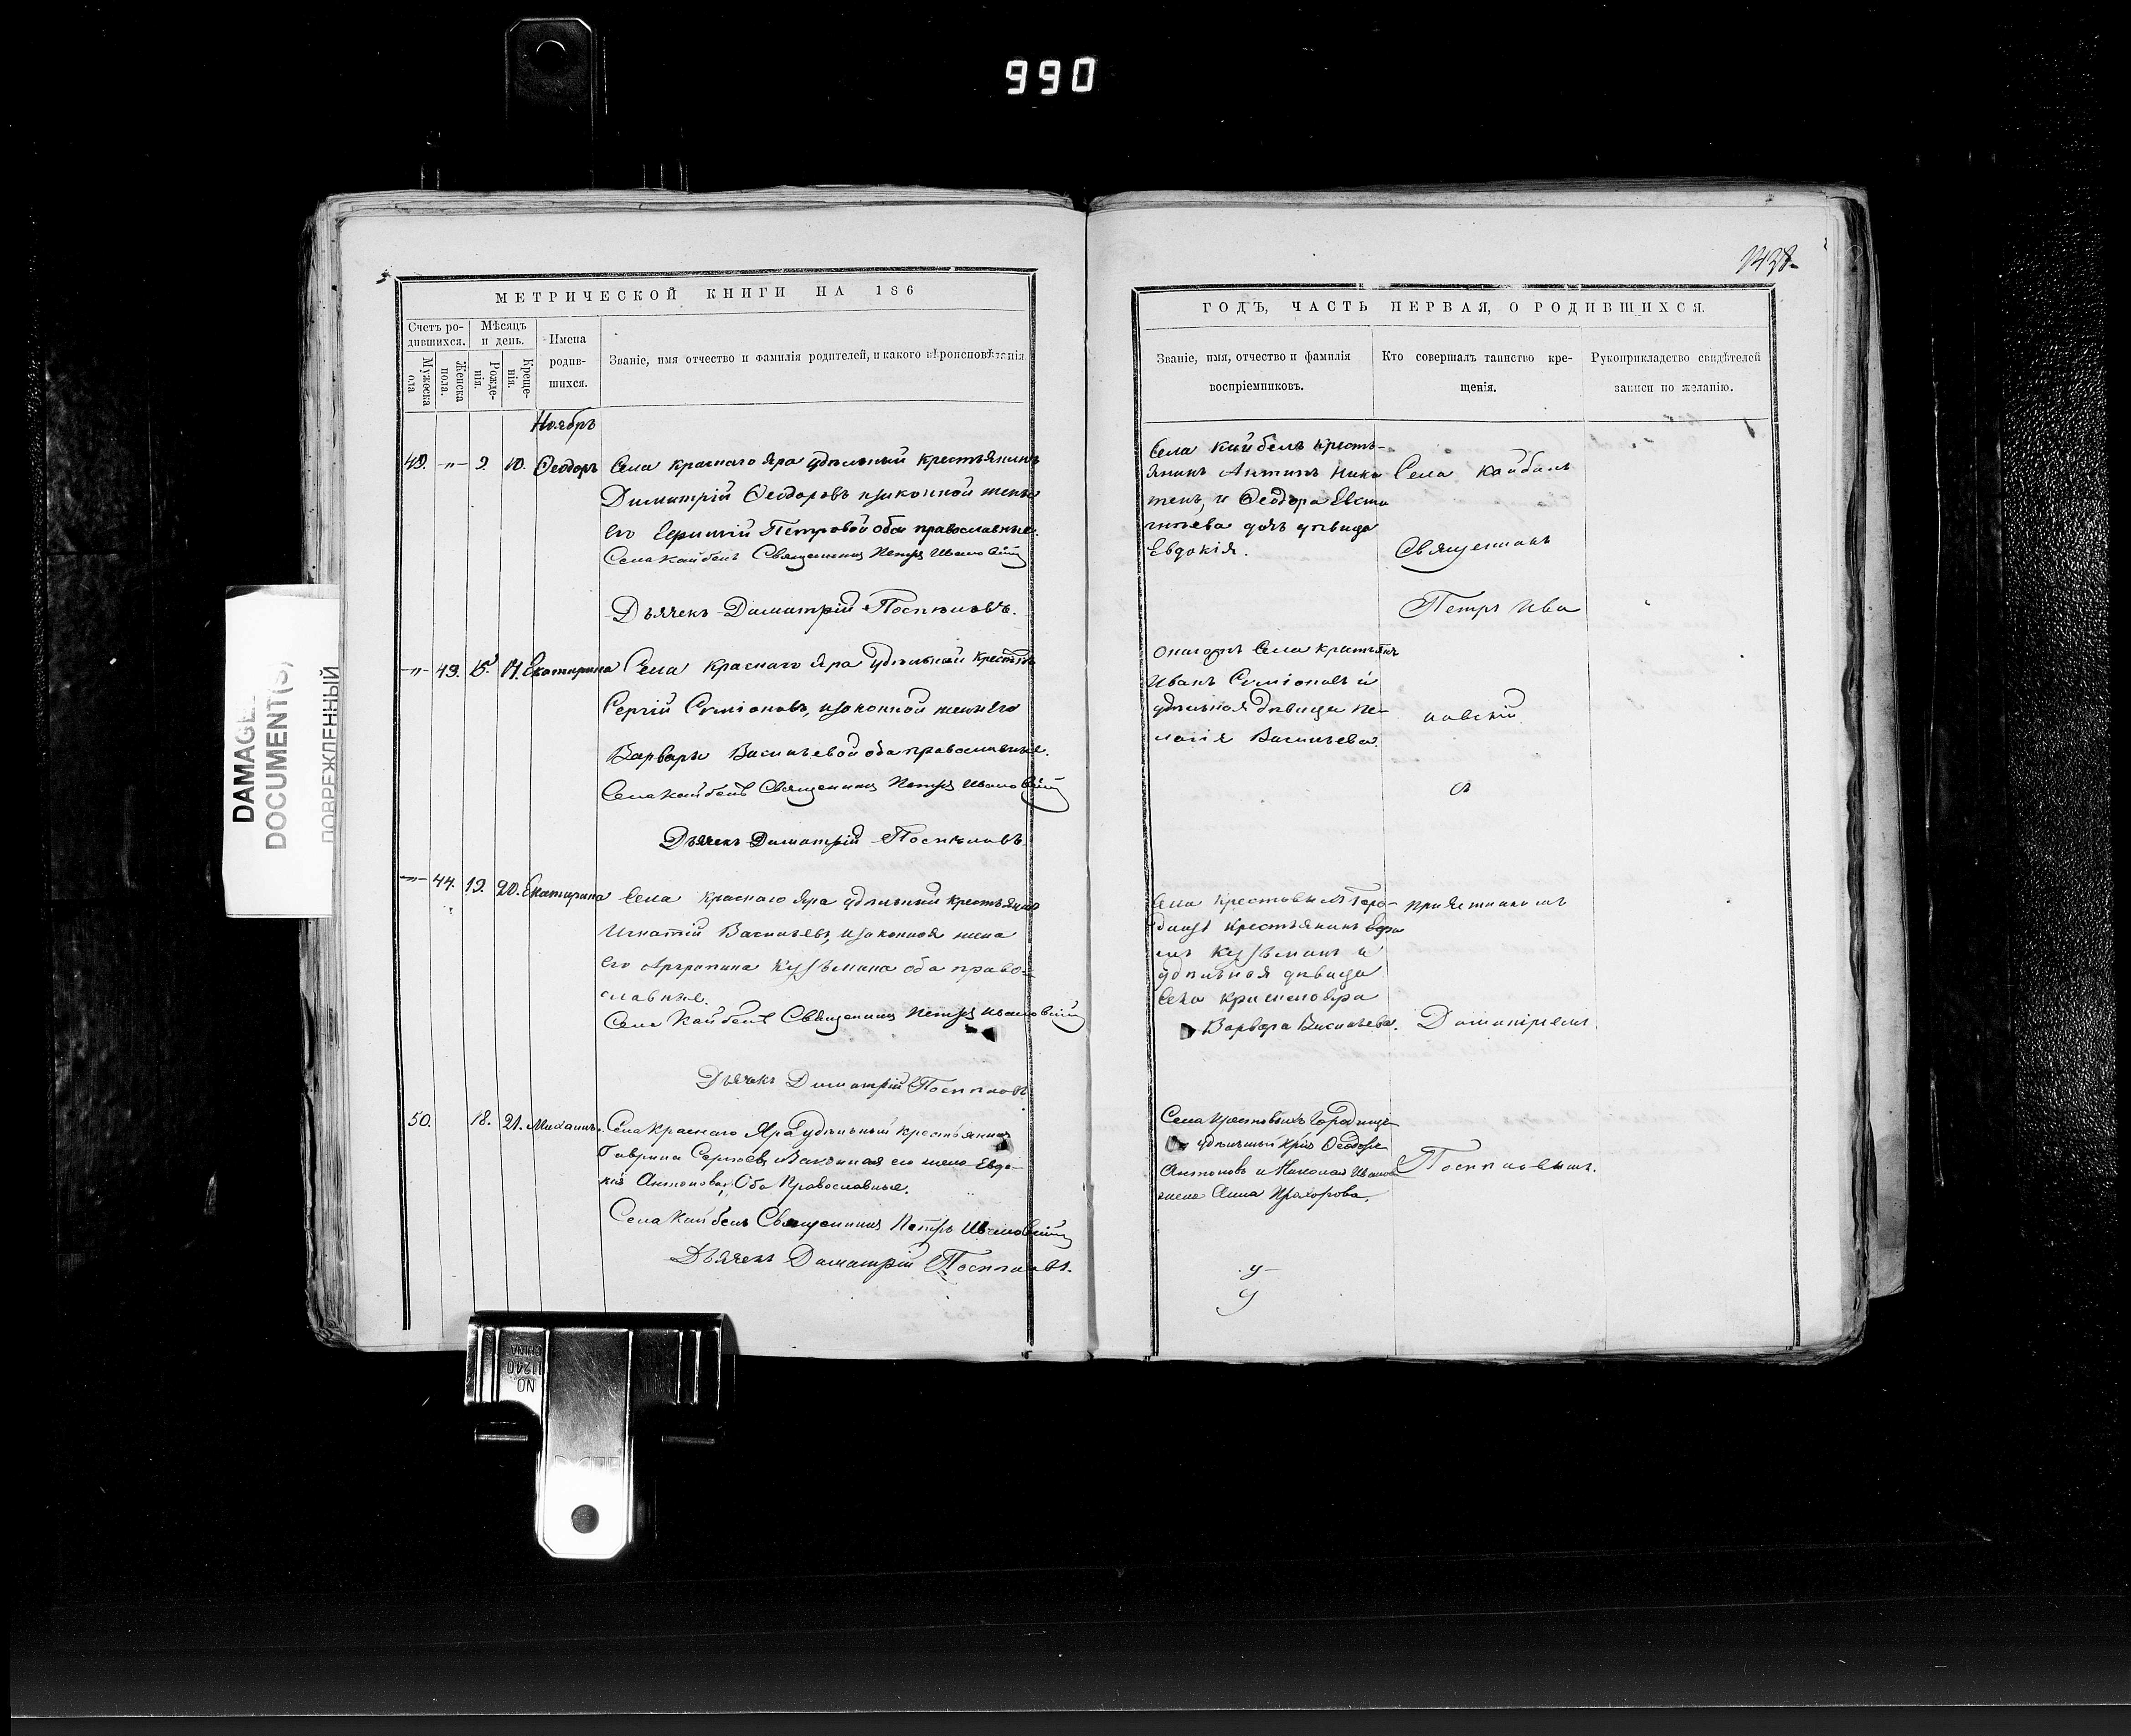 990
1438.
МЕТРИЧЕСКОЙ КНИГИ НА 186
Счетъ ро-
дившихся.
Мужеска
ола
Женска
пола.
Мѣсяцъ
и день.
Рожде-
нія.
Креще-
нія.
Имена
родив-
шихся.
Званіе, имя отчество и фамилія родителей, и какого вѣроисповѣданія
Ноябрь
49. -„- 9. 10. Ѳеодоръ Села Краснаго Яра удѣльный крестьянинъ
Димитрій Ѳеодоровъ и законной жены
его Петровой оба православные.
Села Кайбелъ Священникъ Петръ Ивановскій
Дьячекъ Димитрій Поспѣловъ.
-„- 43. 15. 17. Екатирина Села Краснаго Яра удѣльный крестьян
Сергій Симіоновъ, и законной жены его
Варвары Васильевой оба православные.
Села Кайбелъ Священникъ Петръ Ивановскій
Дьячекъ Димитрій Поспѣловъ
-„- 44. 19. 20. Екатирина Села Краснаго Яра удѣльный крестьянинъ
Игнатій Васильевъ, и законная жена
его Агрипина Кузьмина оба право-
славные.
Села Кайбелъ Священникъ Петръ Ивановскій
Дьячекъ Димитрій Поспѣловъ
50. 18. 21. Михаилъ. Села Краснаго Яра удѣльный крестьянинъ
Гаврила Сергѣевъ и законная его жена Евдо-
кія Антонова, Оба Православные.
Села Кайбелъ Священникъ Петръ Ивановскій
Дьячекъ Димитрій Поспѣловъ.
ГОДЪ, ЧАСТЬ ПЕРВАЯ, О РОДИВШИХСЯ.
Званіе, имя, отчество и фамилія
воспріемниковъ.
Кто совершалъ таинство кре-
щенія.
Рукоприкладство свидѣтелей
записи по желанію.
Села Кайбелъ кресть-
янинъ Антипъ Ники
тинъ, и Ѳеодора Евсти
гнѣева дочь дѣвица
Евдокія.
Села Кайбалъ
Священникъ
Петръ Ива
Села
Иванъ Симіоновъ и
удѣльная дѣвица Пе-
лагія Васильева.
новскій
съ
Села Крестовыхъ Горо-
дищъ крестьянинъ
Кузьминъ и
удѣльная дѣвица
Села Краснояра
Варвара Васильева.
причетникомъ
Димитріемъ
Села Крестовыхъ Городище
удѣльный Ѳеодоръ
Антоновъ и Николая Иванова
жена Анна Прохорова.
Поспѣловымъ.